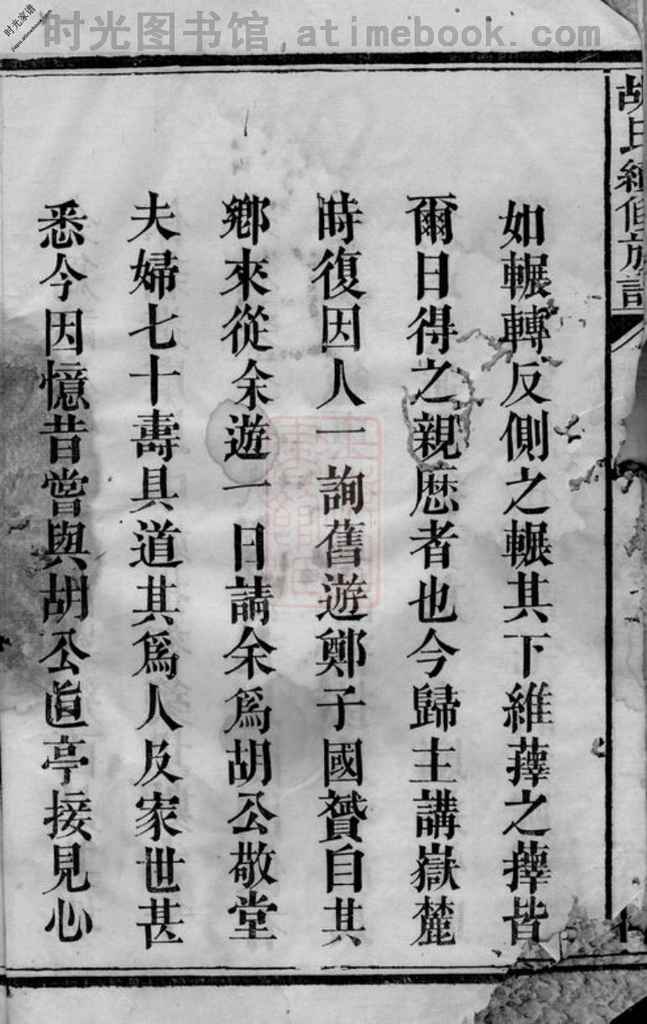 时光图书馆, atimebook.com
时光家谱
胡氏續修族譜
如輾轉反側之輾其下維蘀之蘀皆
爾日得之親歷者也今歸主講嶽麓
時復因人一詢舊遊鄭子國贇自其
鄉來從余遊一日請余爲胡公敬堂
夫婦七十壽具道其爲人及家世甚
悉今因憶昔嘗與胡公直亭接見心